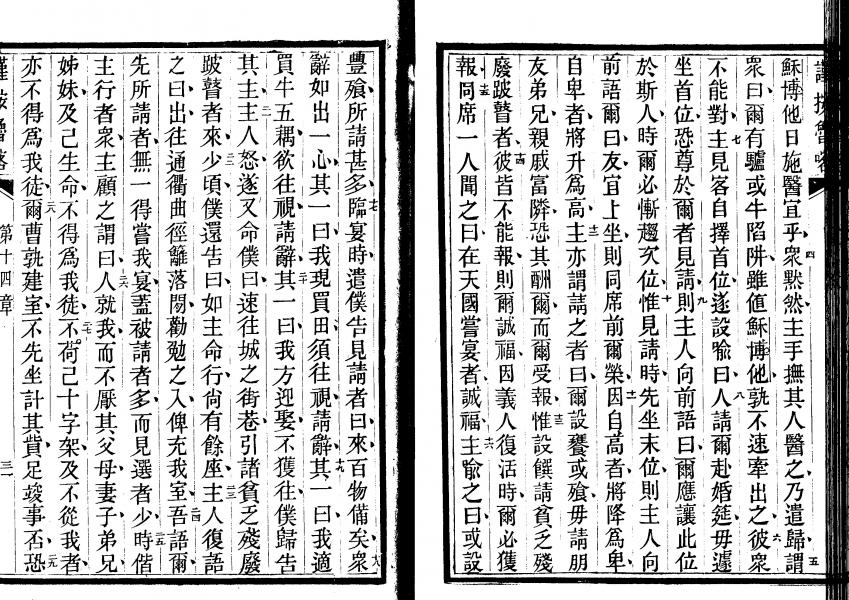 穌博他日施醫宜乎衆黙然主手撫其人醫之乃遣歸謂
衆曰爾有驢或牛陷阱雖值穌博他孰不速牽出之彼衆
不能對主見客自擇首位遂設喻曰人請爾赴婚筵毋遽
坐首位恐尊於爾者見請則主人向前語曰爾應讓此位
於斯人時爾必慚趨次位惟見請時先坐末位則主人向
前語爾曰友宜上坐則同席前爾榮因自高者將降爲卑
自卑者將升爲高主亦謂請之者曰爾設饔或飧毋請朋
友弟兄親戚富隣恐其酬爾而爾受報惟設饌請貧乏殘
廢跛瞽者彼皆不能報則爾誠福因義人復活時爾必獲
報同席一人聞之曰在天國嘗宴者誠福主喻之曰或設
豐飧所請甚多臨宴時遣僕告見請者曰來百物備矣衆
辭如出一心其一曰我現買田須往視請辭其一曰我適
買牛五耦欲往視請辭其一曰我方迎娶不獲往僕歸告
其主主人怒遂又命僕曰速往城之街巷引諸貧乏殘廢
跛瞽者來少頃僕還告曰如主命行尙有餘座主人復語
之曰出往通衢曲徑籬落間勸勉之入俾充我室吾語爾
先所請者無一得嘗我宴蓋被請者多而見選者少時偕
主行者衆主顧之謂曰人就我而不厭其父母妻子弟兄
姊妹及己生命不得爲我徒不荷己十字架及不從我者
亦不得爲我徒爾曹孰建室不先坐計其貲足竣事否恐
第十四章
三一